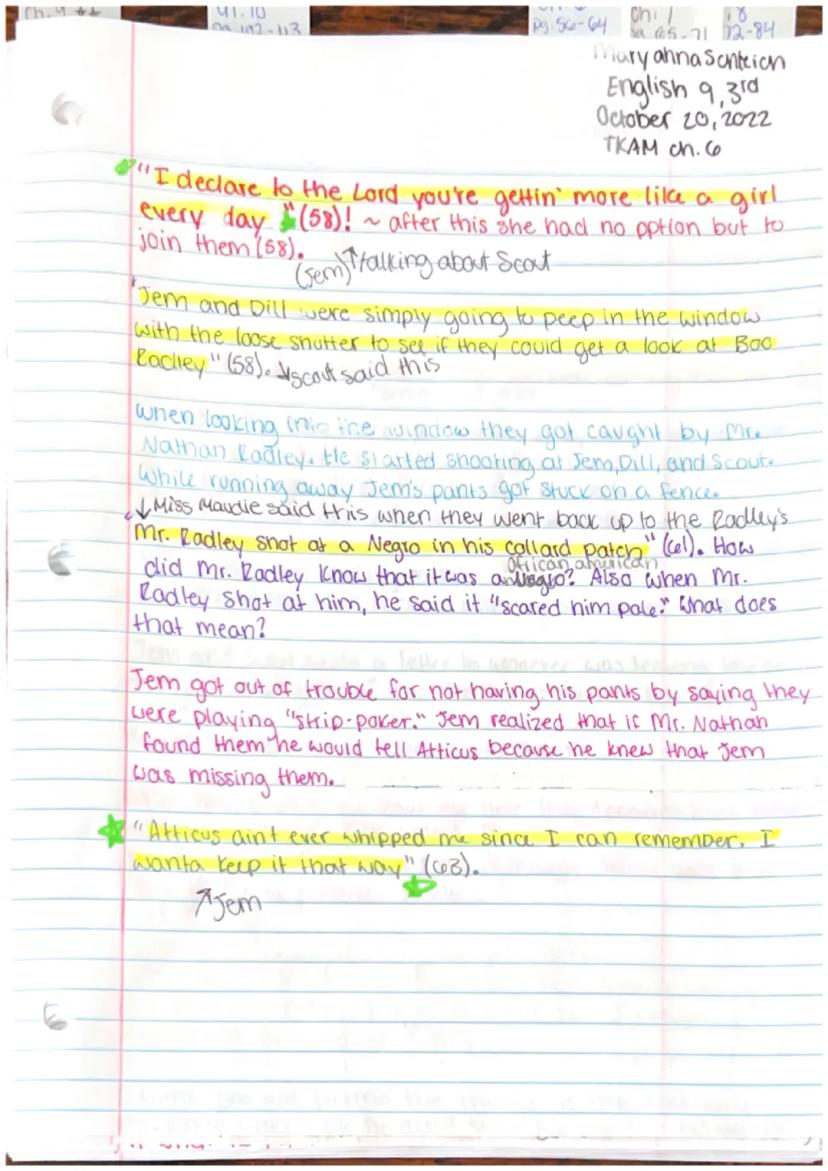 Ch. 4
pg. 56-64
Ch. 1
72-84
English 9, 3rd
October 20, 2022
TKAM ch. 6
"I declare to the Lord you're gettin' more like a girl
every day" (58)! ~ after this she had no option but to
join them (58).
(Jem) ↑talking about Scout
"Jem and Dill were simply going to peep in the window
with the loose shutter to see if they could get a look at Boo
Radley" (58). ↓scout said this
When looking into the window they got caught by Mr.
Nathan Radley. He started shooting at Jem, Dill, and Scout.
While running away Jem's pants got stuck on a fence.
↓Miss Maudie said this when they went back up to the Radley's
"Mr. Radley shot at a Negro in his collard patch" (61). How
african american
did Mr. Radley know that it was a Negro? Also when Mr.
Radley shot at him, he said it "scared him pale." What does
that mean?
Jem got out of trouble for not having his pants by saying they
were playing "strip-poker." Jem realized that if Mr. Nathan
found them he would tell Atticus because he knew that Jem
was missing them.
"Atticus ain't ever whipped me since I can remember. I
wanta keep it that way" (63).
↑Jem